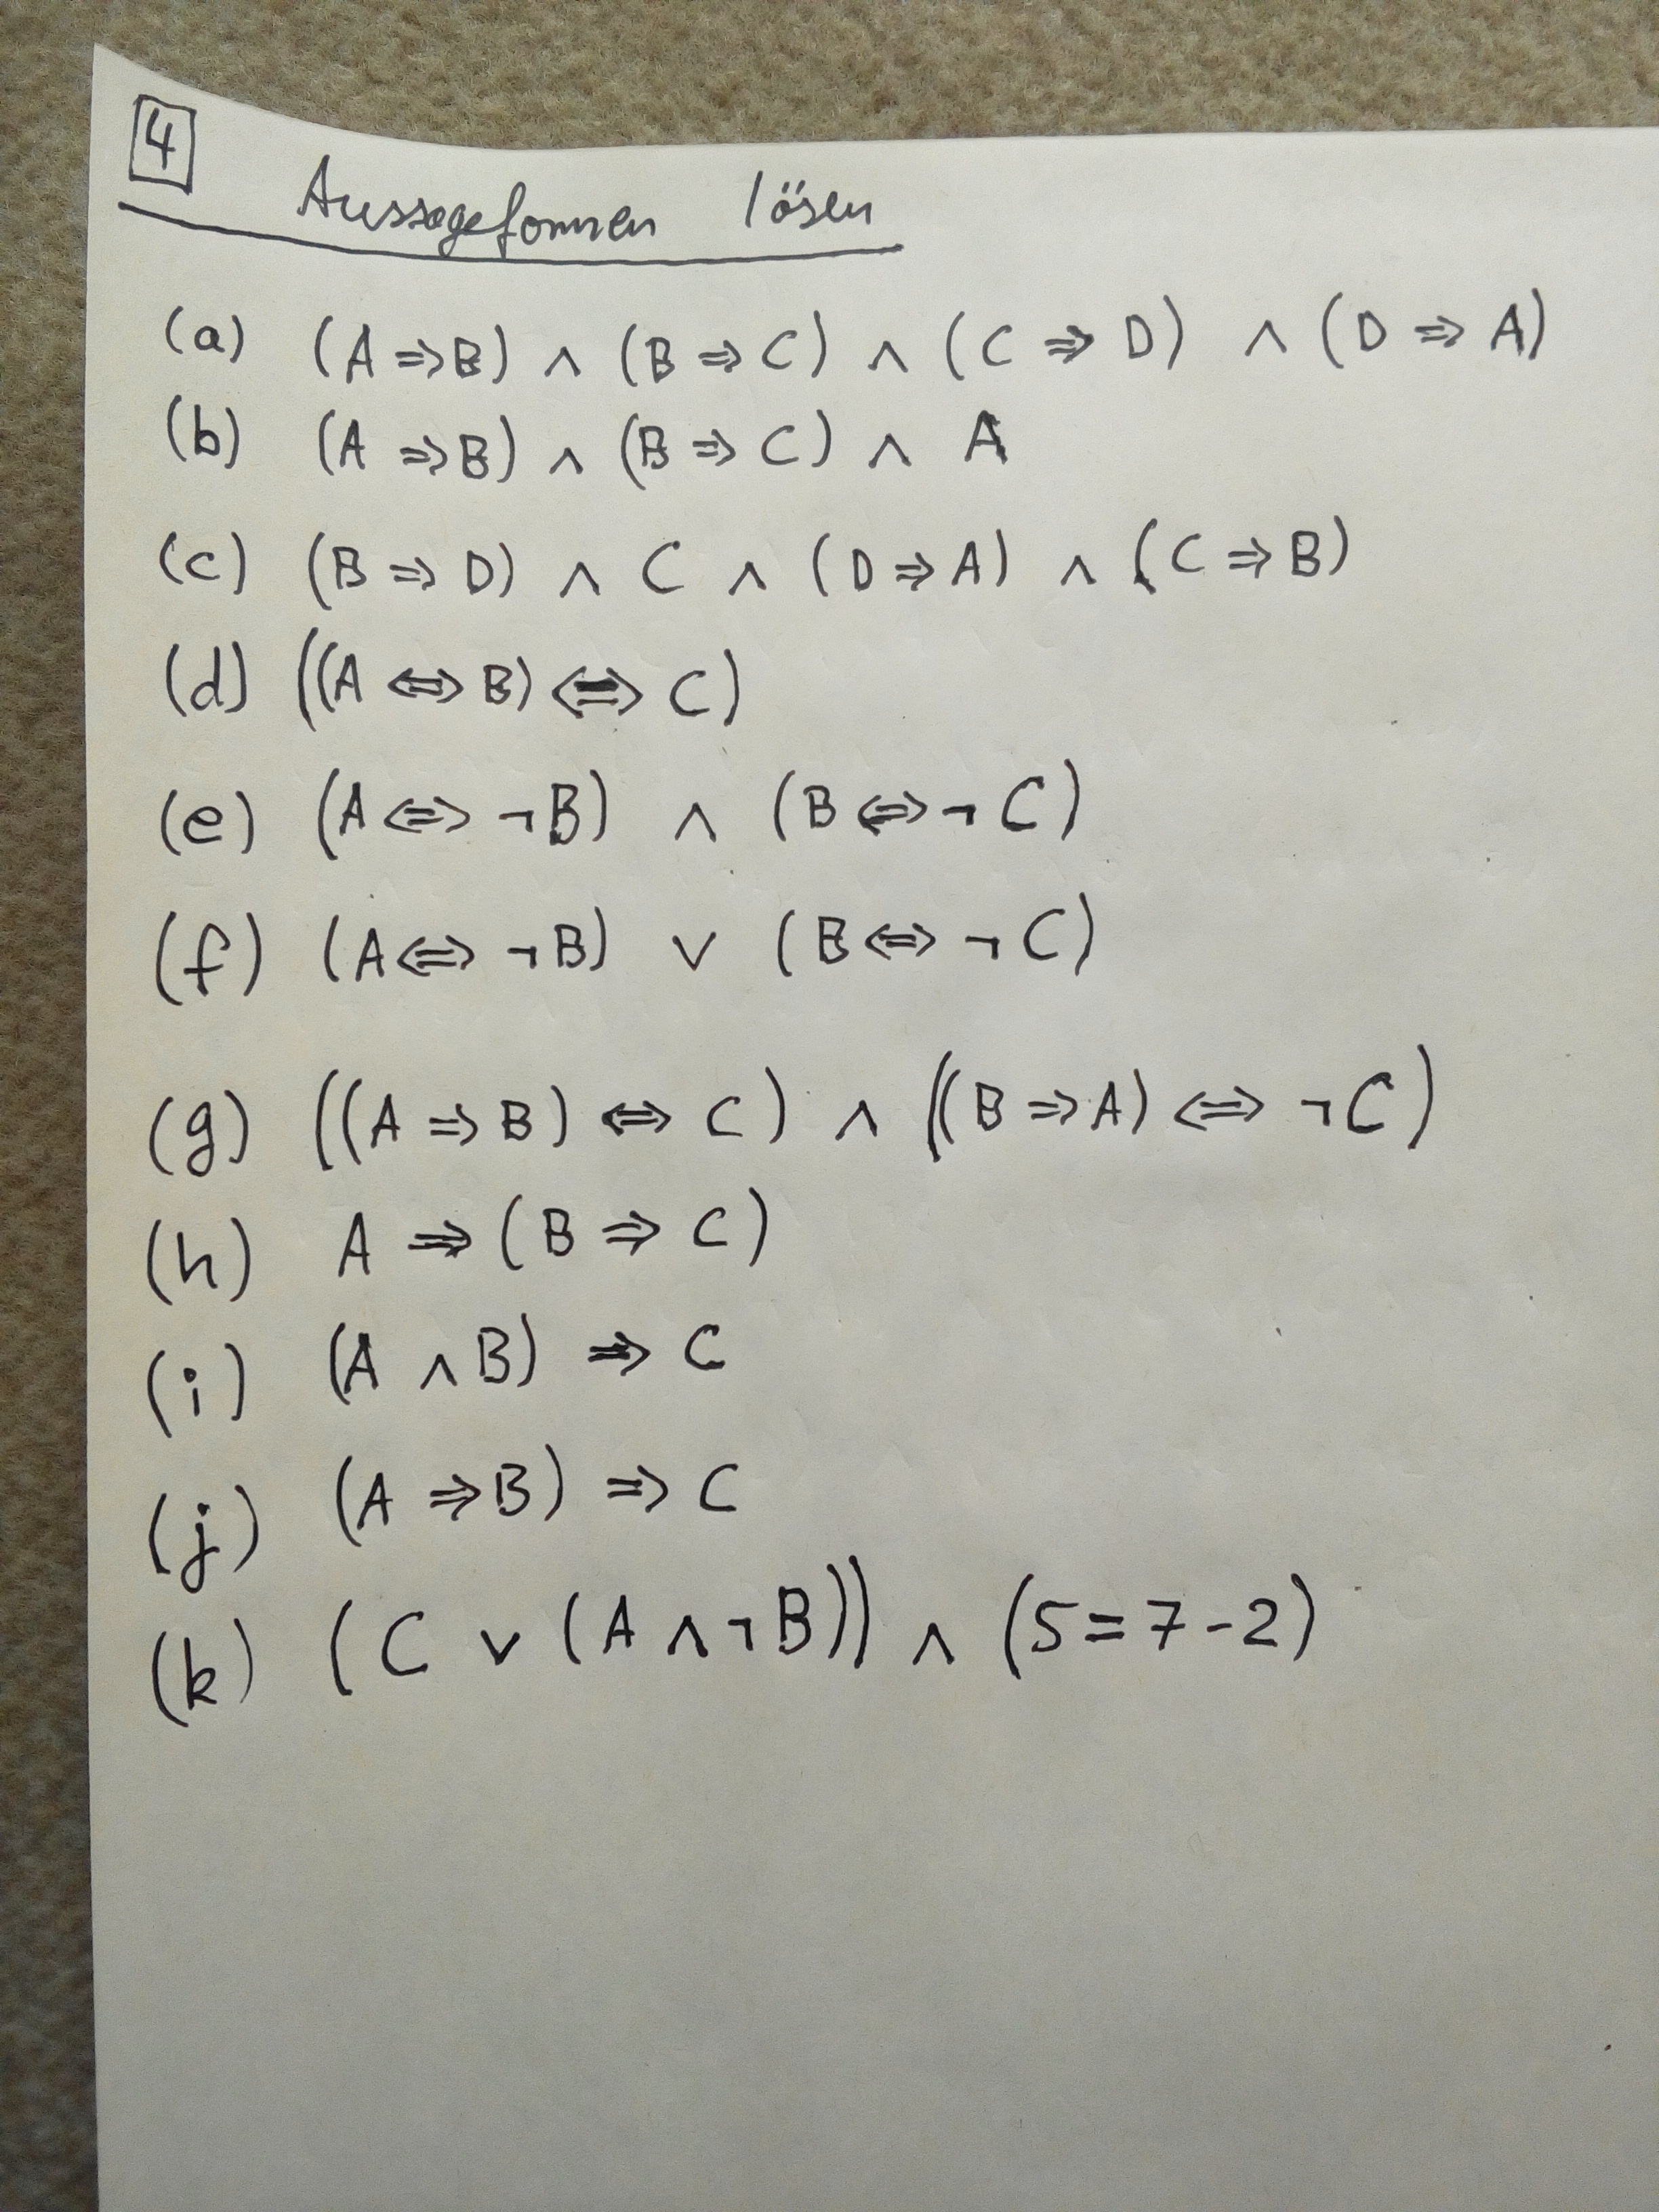 4 Aussageformen lösen
(a) (A ⇒ B) ∧ (B ⇒ C) ∧ (C ⇒ D) ∧ (D ⇒ A)
(b) (A ⇒ B) ∧ (B ⇒ C) ∧ A
(c) (B ⇒ D) ∧ C ∧ (D ⇒ A) ∧ (C ⇒ B)
(d) ((A ⇔ B) ⇔ C)
(e) (A ⇔ ¬B) ∧ (B ⇔ ¬C)
(f) (A ⇔ ¬B) ∨ (B ⇔ ¬C)
(g) ((A ⇒ B) ⇔ C) ∧ ((B ⇒ A) ⇔ ¬C)
(h) A ⇒ (B ⇒ C)
(i) (A ∧ B) ⇒ C
(j) (A ⇒ B) ⇒ C
(k) (C ∨ (A ∧ ¬B)) ∧ (5 = 7 - 2)